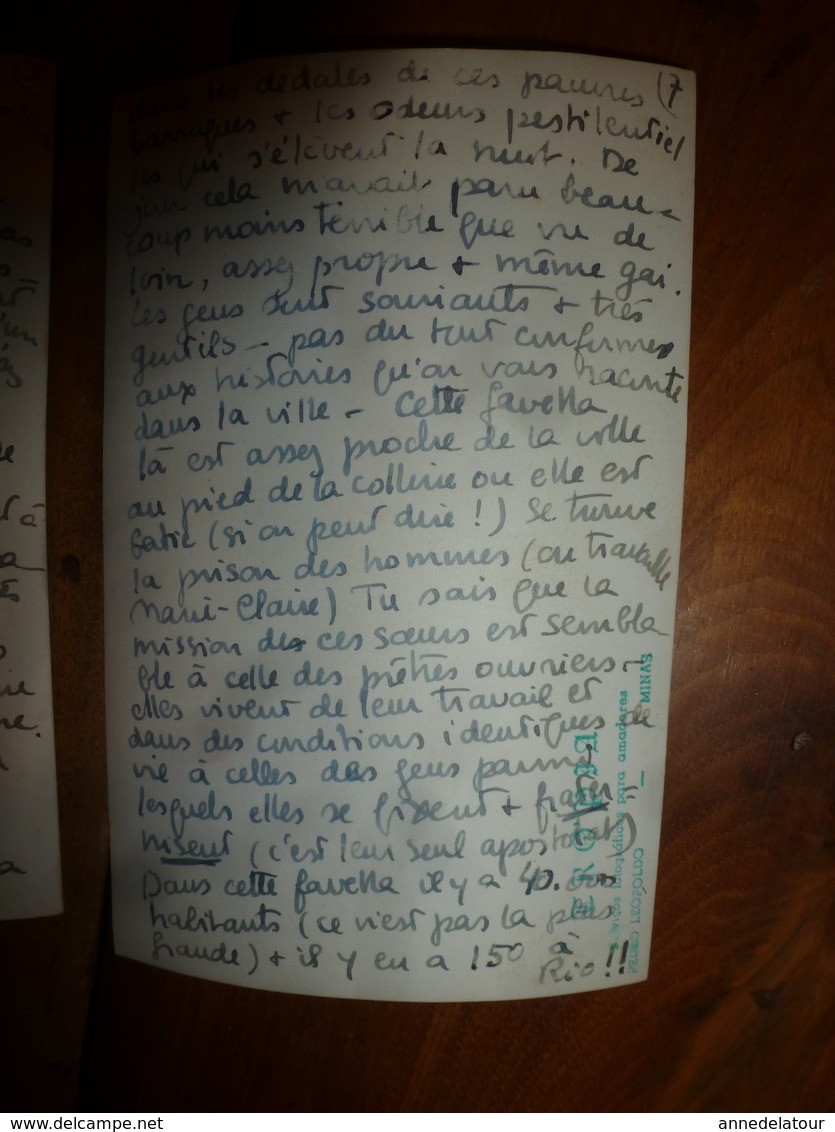 dans les dédales de ces pauvres (7
barraques + les odeurs pestilentiel
les qui s'élèvent la nuit. De
jour cela m'avait paru beau-
coup moins terrible que vu de
loin, assez propre + même gai.
Les gens sont souriants + très
gentils - pas du tout conformes
aux histoires qu'on vous raconte
dans la ville - Cette favella
là est assez proche de la ville
au pied de la colline ou elle est
batie (si on peut dire !) se trouve
la prison des hommes (ou travaille
Marie-Claire) Tu sais que la
mission de ces sœurs est sembla-
ble à celle des prêtres ouvriers -
elles vivent de leur travail et
dans des conditions identiques de
vie à celles des gens parmi
lesquels elles se fixent + frater
nisent (c'est leur seul apostolat)
Dans cette favella il y a 40.000
habitants (ce n'est pas la plus
grande) + il y en a 150 à
Rio !!
Serviços fotográficos para amadores
PEDRO LEOPOLDO - MINAS
delcampe.net
annedelatour